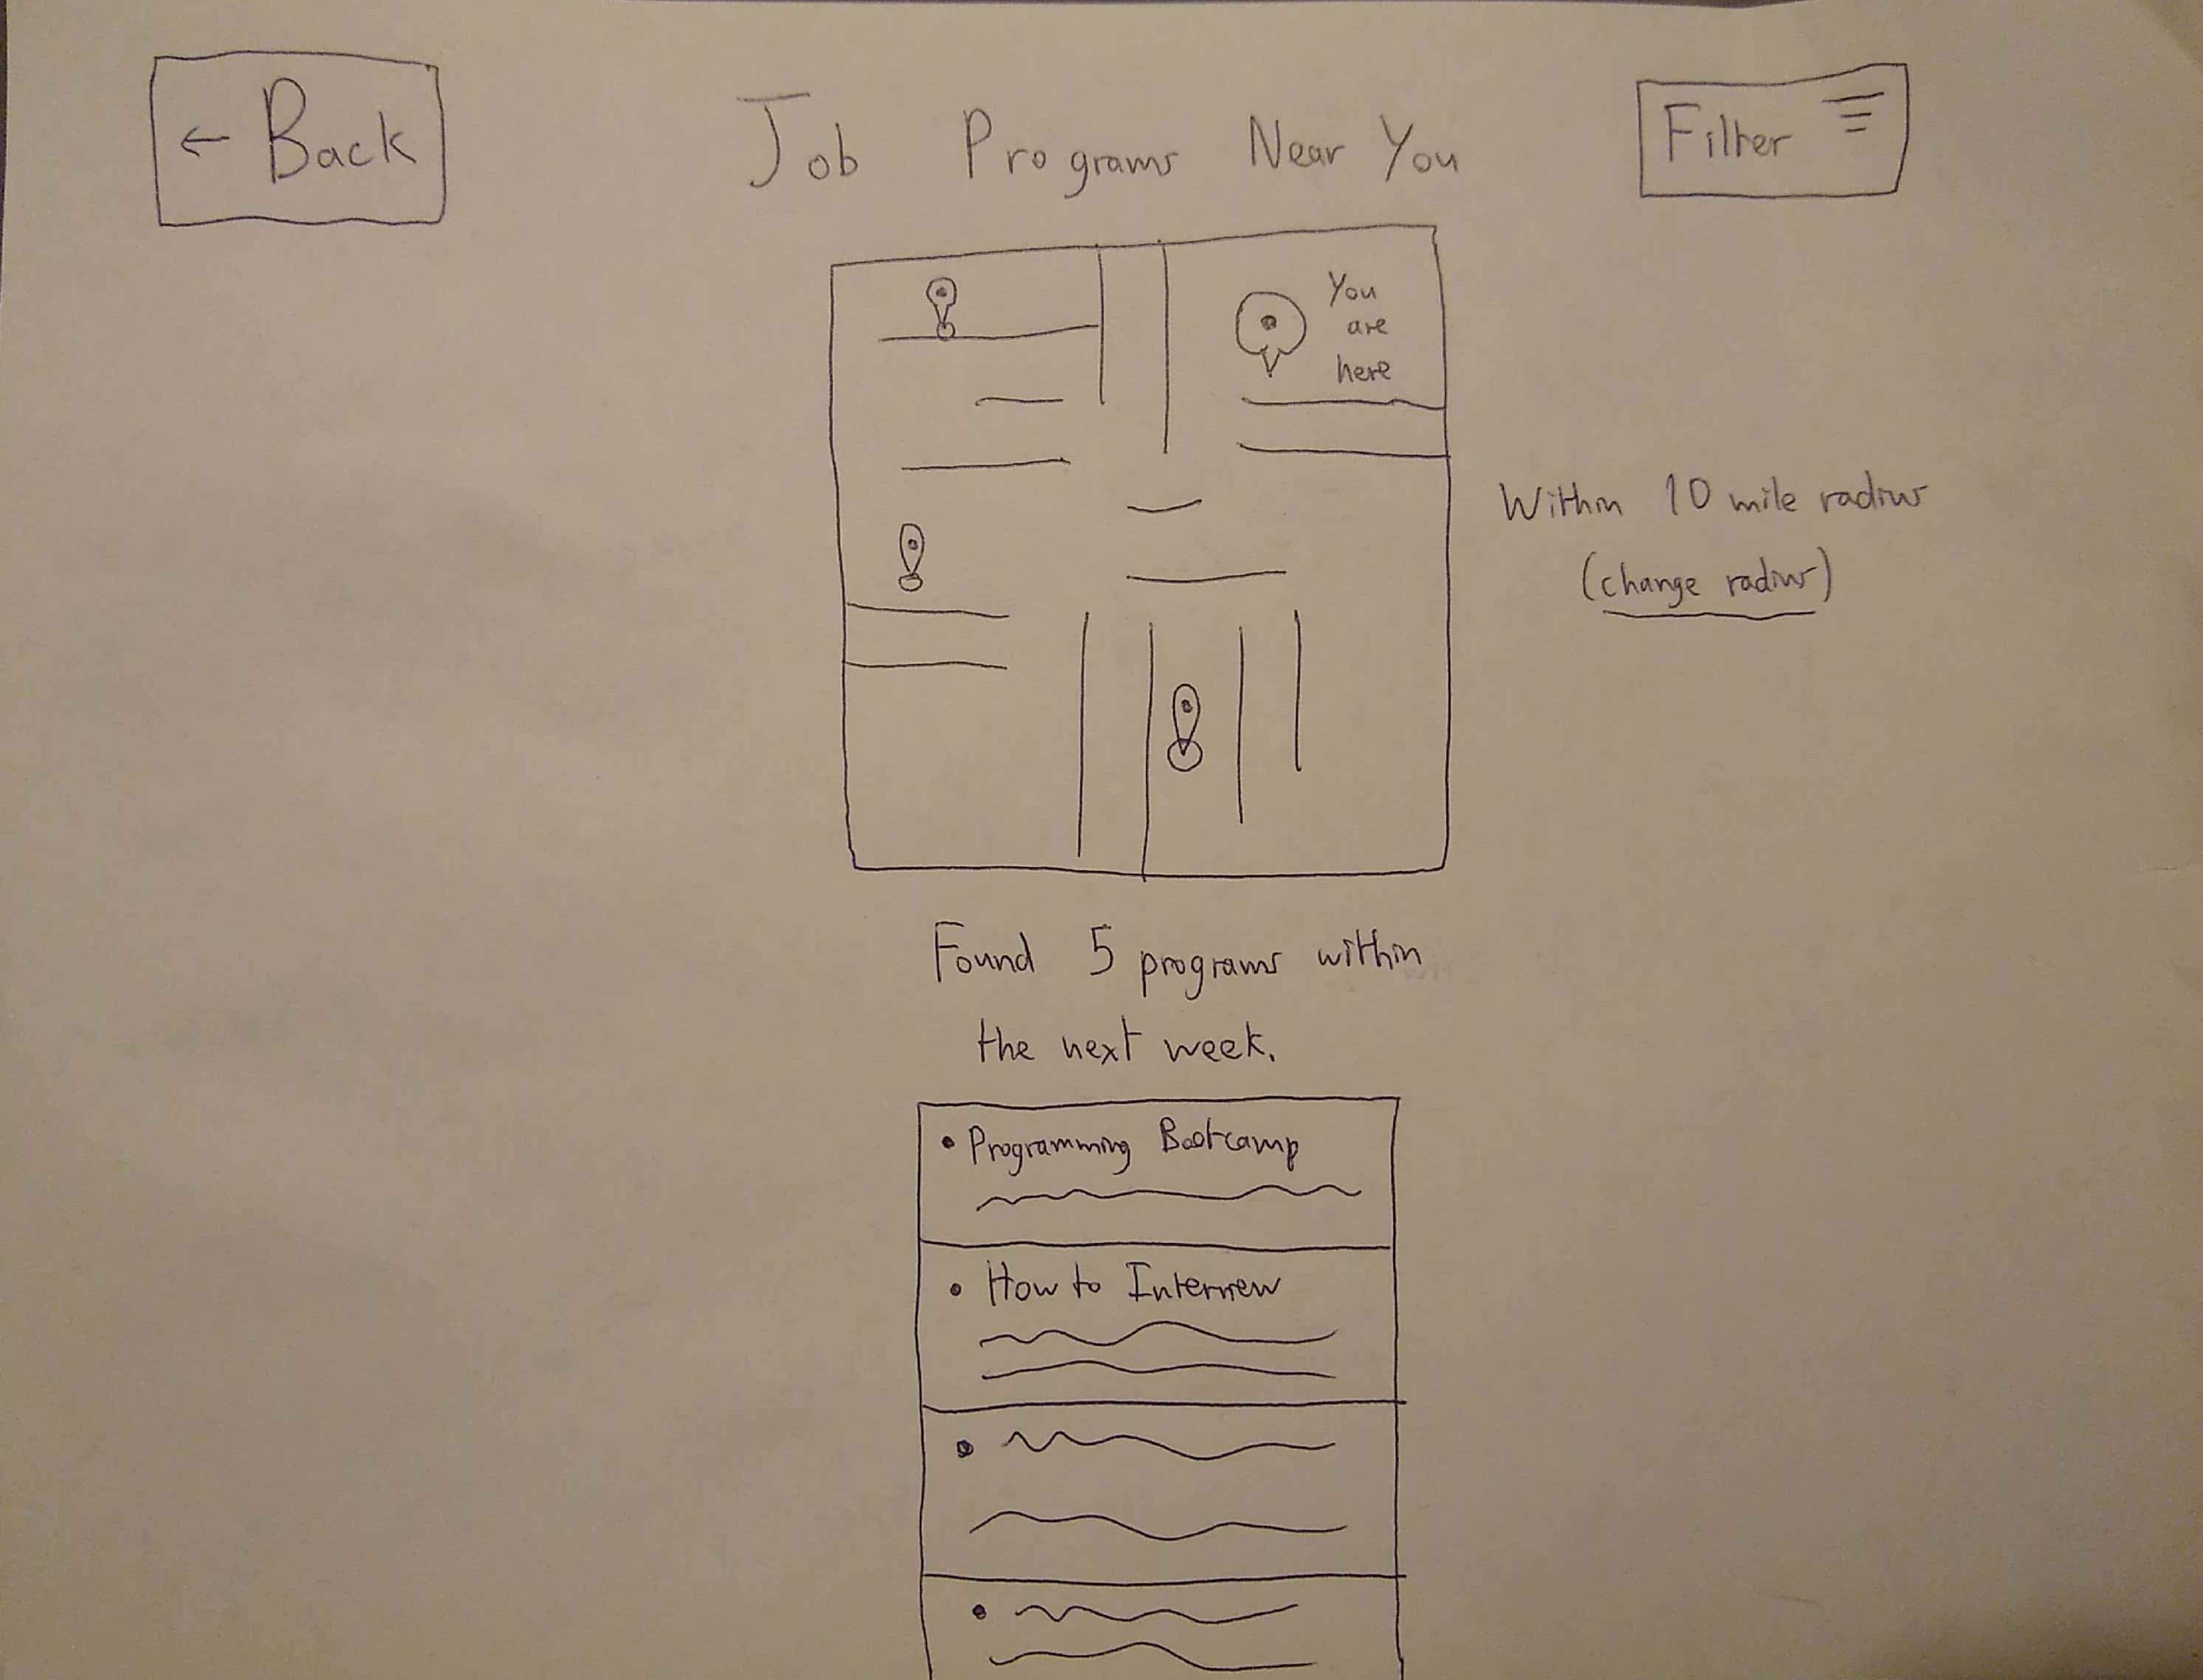 ← Back
Job Programs Near You
Filter
You
are
here
Within 10 mile radius
(change radius)
Found 5 programs within
the next week.
• Programming Bootcamp
• How to Interview